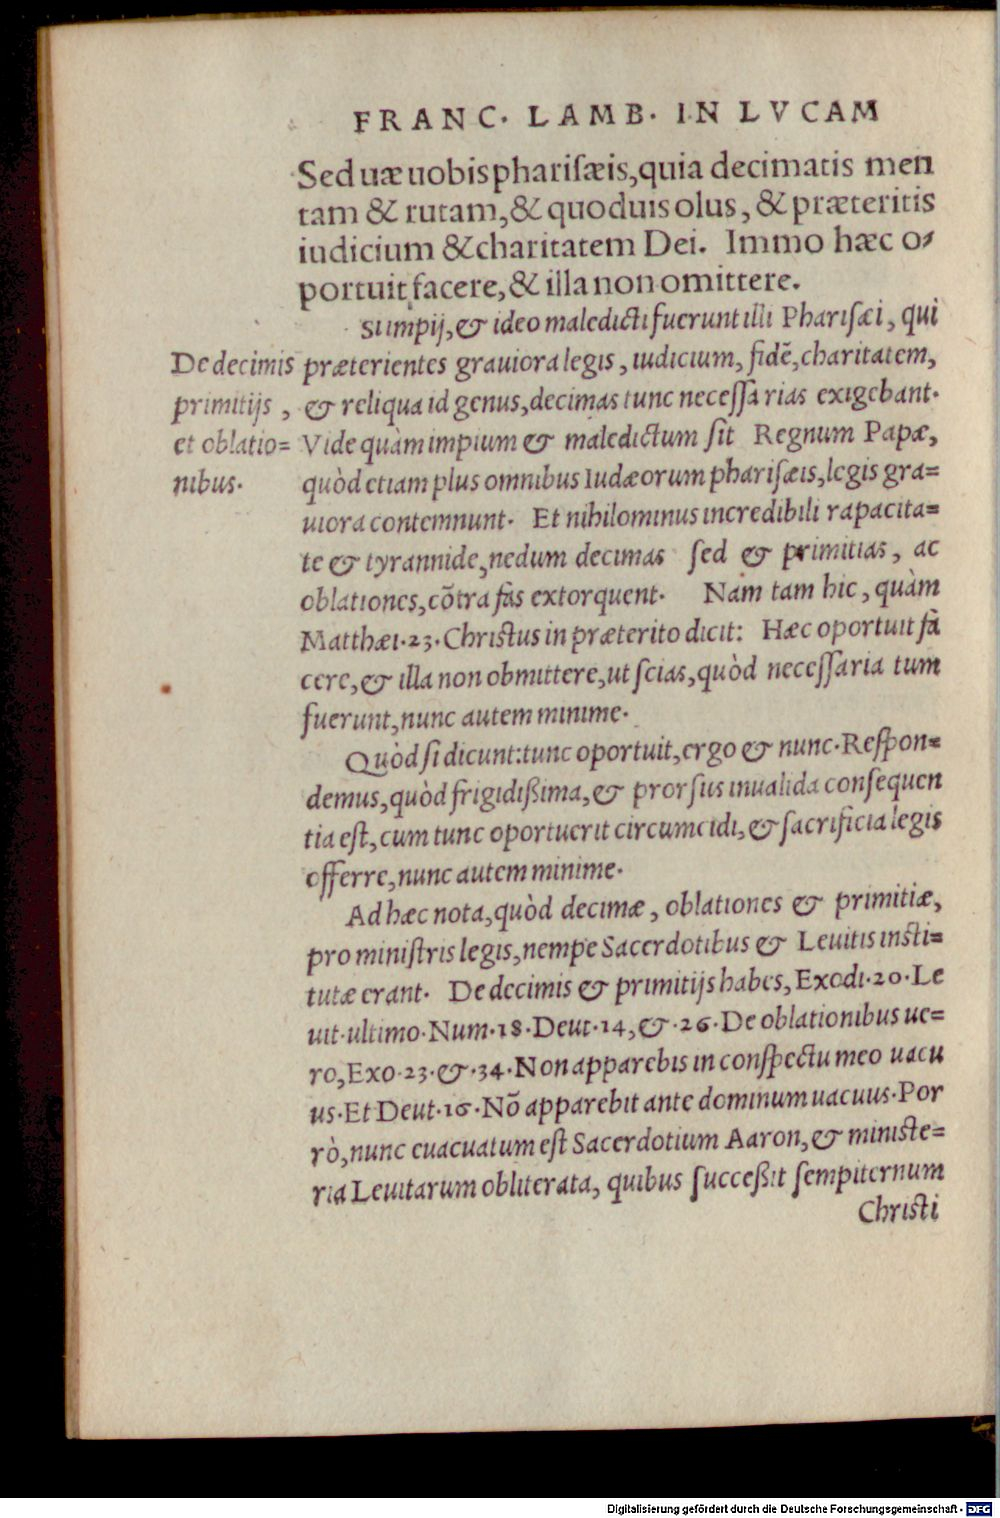 FRANC. LAMB. IN LVCAM
Sed uæ uobis pharisæis, quia decimatis men
tam & rutam, & quoduis olus, & præteritis
iudicium & charitatem Dei. Immo hæc o-
portuit facere, & illa non omittere.
Si impij, & ideo maledicti fuerunt illi Pharisæi, qui
De decimis
primitijs,
et oblatio=
nibus.
præterientes grauiora legis, iudicium, fidē, charitatem,
& reliqua id genus, decimas tunc necessarias exigebant.
Vide quàm impium & maledictum sit Regnum Papæ,
quòd etiam plus omnibus Iudæorum pharisæis, legis gra=
uiora contemnunt. Et nihilominus incredibili rapacita=
te & tyrannide, nedum decimas sed & primitias, ac
oblationes, cōtra fas extorquent. Nam tam hic, quàm
Matthæi.23. Christus in præterito dicit: Hæc oportuit fa
cere, & illa non obmittere, ut scias, quòd necessaria tum
fuerunt, nunc autem minime.
Quòd si dicunt: tunc oportuit, ergo & nunc. Respon=
demus, quòd frigidißima, & prorsus inualida consequen
tia est, cum tunc oportuerit circumcidi, & sacrificia legis
offerre, nunc autem minime.
Ad hæc nota, quòd decimæ, oblationes & primitiæ,
pro ministris legis, nempe Sacerdotibus & Leuitis insti=
tutæ erant. De decimis & primitijs habes, Exodi.20. Le
uit. ultimo. Num.18. Deut.14, &.26. De oblationibus ue=
ro, Exo.23.&.34. Non apparebis in conspectu meo uacu
us. Et Deut.16. Nō apparebit ante dominum uacuus. Por
rò, nunc euacuatum est Sacerdotium Aaron, & ministe=
ria Leuitarum obliterata, quibus succeßit sempiternum
Christi
Digitalisierung gefördert durch die Deutsche Forschungsgemeinschaft - DFG